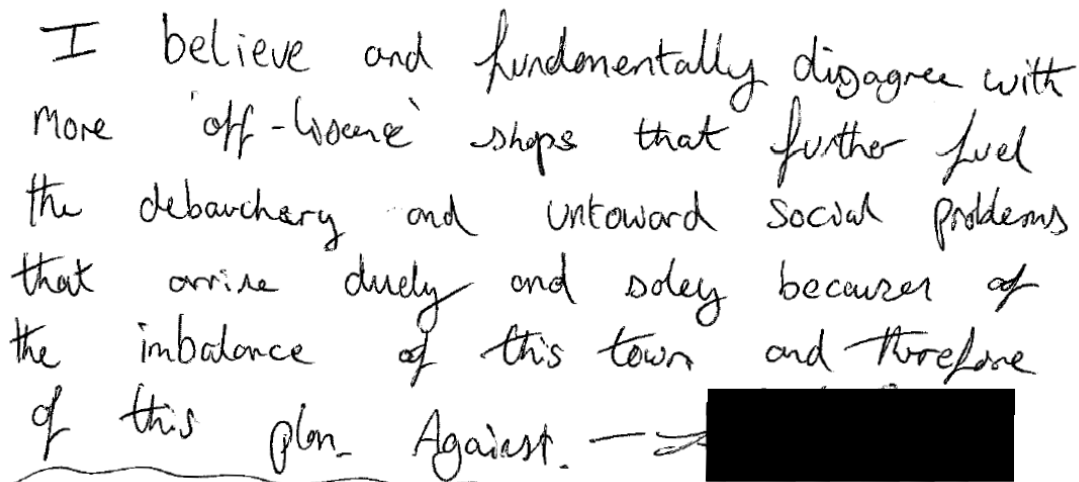 I believe and fundamentally disagree with
more 'off-lisence' shops that further fuel
the debauchery and untoward social problems
that arrise duely and soley because of
the imbalance of this town and therefore
of this plan. Against. —